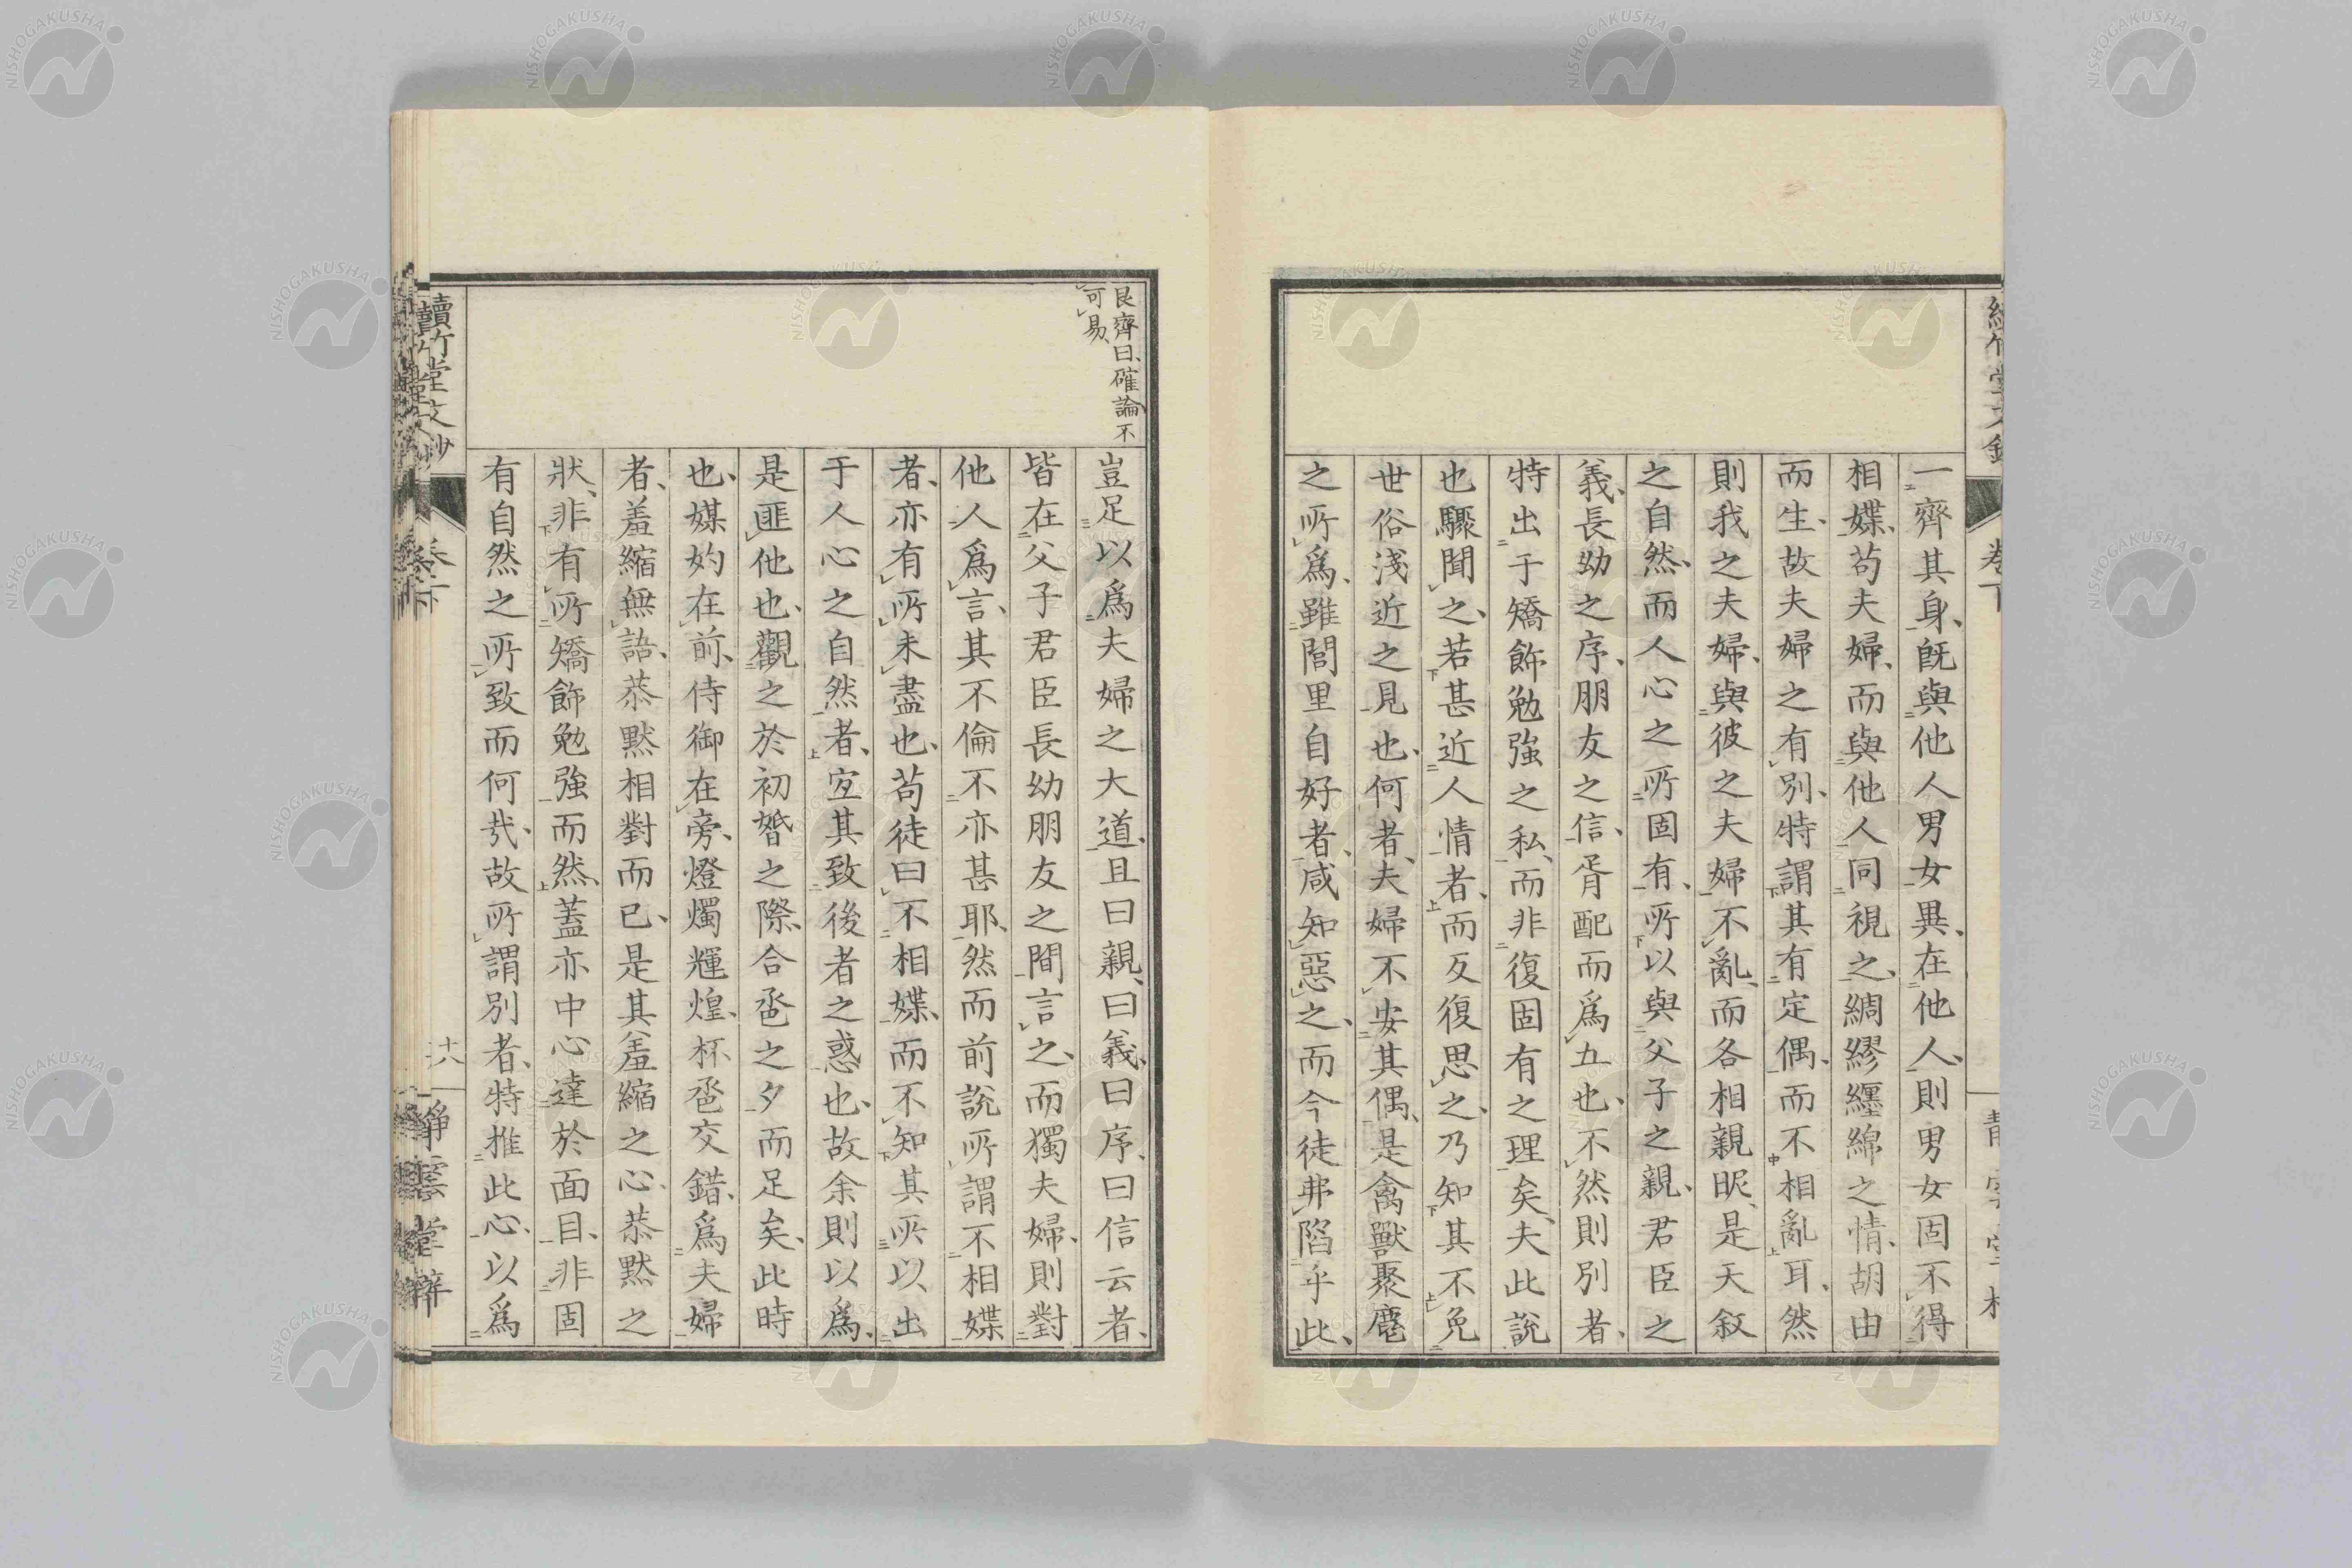 一齊其身、既與他人男女異、在他人、則男女固不得
相媟、苟夫婦、而與他人同視之、綢繆纏綿之情、胡由
而生、故夫婦之有別、特謂其有定偶、而不相亂耳、然
則我之夫婦、與彼之夫婦不亂、而各相親昵、是天敘
之自然、而人心之所固有、所以與父子之親、君臣之
義、長幼之序、朋友之信、胥配而爲五也、不然則別者、
特出于矯飾勉強之私、而非復固有之理矣、夫此說
也驟聞之、若甚近人情者、而反復思之、乃知其不免
世俗淺近之見也、何者、夫婦不安其偶、是禽獸聚麀
之所爲、雖閭里自好者、咸知惡之、而今徒弗陷乎此、
艮齊曰、確論不
可易、
豈足以爲夫婦之大道、且曰親、曰義、曰序、曰信云者、
皆在父子君臣長幼朋友之間言之、而獨夫婦、則對
他人爲言、其不倫不亦甚耶、然而前說所謂不相媟
者、亦有所未盡也、苟徒曰不相媟、而不知其所以出
于人心之自然者、宜其致後者之惑也、故余則以爲、
是匪他也、觀之於初婚之際、合巹之夕而足矣、此時
也、媒妁在前、侍御在旁、燈燭輝煌、杯巹交錯、爲夫婦
者、羞縮無語、恭默相對而已、是其羞縮之心、恭默之
狀、非有所矯飾勉強而然、蓋亦中心達於面目、非固
有自然之所致而何哉、故所謂別者、特推此心、以爲
讀竹堂文鈔
卷下
十八
靜雲堂梓
NISHOGAKUSHA